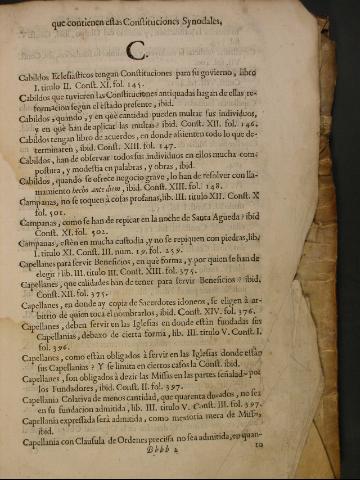 que contienen estas Constituciones Synodales,
C.
Cabildos Eclesiasticos tengan Constituciones para su govierno, libro
I. titulo II. Const. XI. fol. 145.
Cabildos que tuvieren las Constituciones antiquadas hagan de ellas re-
formacion segun el estado presente, ibid.
Cabildos, quando, y en què cantidad pueden multar sus individuos,
y en què han de aplicar las multas? ibid. Const. XII. fol. 146.
Cabildos tengan libro de acuerdos, en donde assienten todo lo que de-
terminaren, ibid. Const. XIII. fol. 147.
Cabildos, han de observar todos sus individuos en ellos mucha com-
postura, y modestia en palabras, y obras, ibid.
Cabildos, quando se ofrece negocio grave, lo han de resolver con lla-
mamiento hecho ante diem, ibid. Const. XIII. fol. 148.
Campanas, no se toquen à cosas profanas, lib. III. titulo XII. Const. X
fol. 501.
Campanas, como se han de repicar en la noche de Santa Agueda? ibid
Const. XI. fol. 502.
Campanas, estèn en mucha custodia, y no se repiquen con piedras, lib.
I. titulo XI. Const. III. num. 19. fol. 259.
Capellanes para servir Beneficios, en què forma, y por quien se han de
elegir? lib. III. titulo III. Const. XIII. fol. 375.
Capellanes, que calidades han de tener para servir Beneficios? ibid.
Const. XII. fol. 375.
Capellanes, en donde ay copia de Sacerdotes idoneos, se eligen à ar-
bitrio de quien toca el nombrarlos, ibid. Const. XIV. fol. 376.
Capellanes, deben servir en las Iglesias en donde estàn fundadas sus
Capellanias, debaxo de cierta forma, lib. III. titulo V. Const. I.
fol. 396.
Capellanes, como estàn obligados à servir en las Iglesias donde estàn
sus Capellanias? Y se limita en ciertos casos la Const. ibid.
Capellanes, son obligados à dezir las Missas en las partes señaladas por
los Fundadores, ibid. Const. II. fol. 397.
Capellania Colativa de menos cantidad, que quarenta ducados, no sea
en su fundacion admitida, lib. III. titulo V. Const. III. fol. 397.
Capellania expressada serà admitida, como memoria mera de Missas,
ibid.
Capellania con Clausula de Ordenes precisa no sea admitida, en quan-
Dbbb 2 to